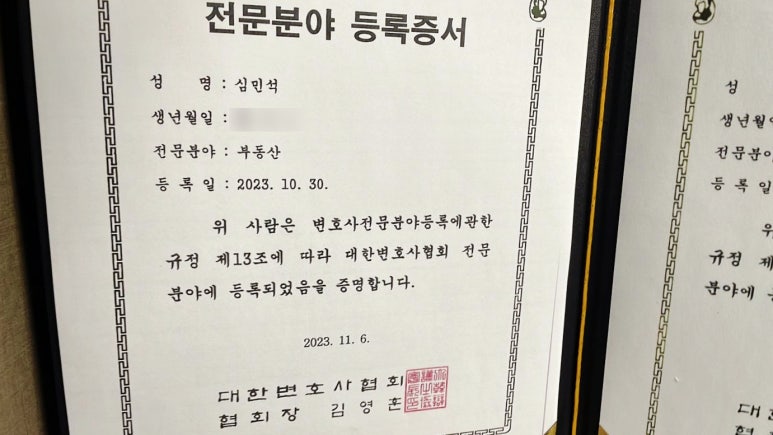 전문분야 등록증서
성 명 : 심민석
생년월일 :
전문분야 : 부동산
등 록 일 : 2023. 10. 30.
위 사람은 변호사전문분야등록에관한
규정 제13조에 따라 대한변호사협회 전문
분야에 등록되었음을 증명합니다.
2023. 11. 6.
대한변호사협회
협회장 김영훈
성
생년월일
전문분야
등 록 일
위
규정 제
분야에
대한
협